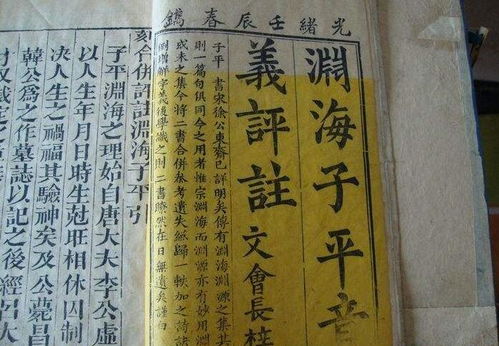 光緒壬辰春鐫
淵海子平音
義評註
文會長梓
子平一書宋徐公東齋已詳明矣傳有淵海淵源之集其
則篇句俱同今之用者惟宗淵海而淵源亦有妙用淵
或未之集今將二書合併參考遺失總歸一帙加之詩訣
明增解字義後學識之則二書瞭然在目無遺矣謹白
刻合併評註淵海子平引
子平淵海之理始自唐大夫李公虛
以人生年月日時生尅旺相休囚制
决人生之禍福其驗神矣及公薨昌
韓公爲之作墓誌以記之後經呂大